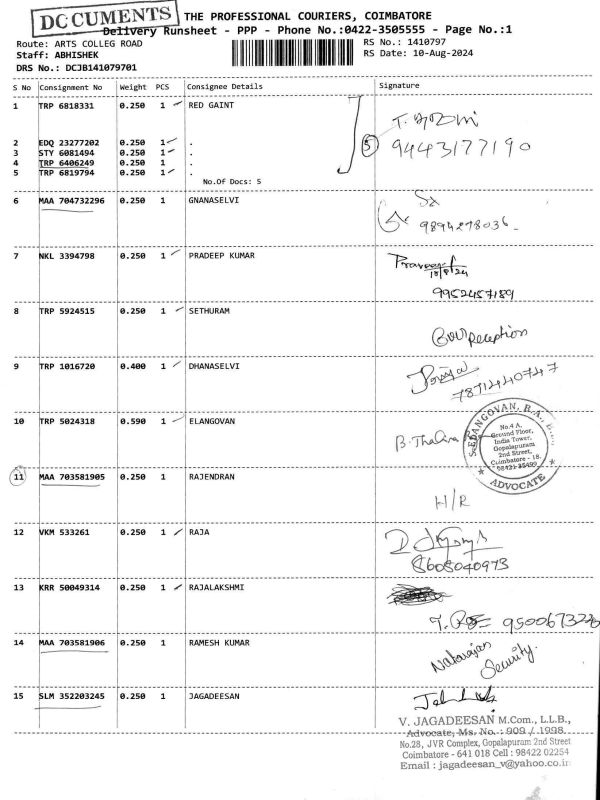 DOCUMENTS
THE PROFESSIONAL COURIERS, COIMBATORE
Delivery Runsheet - PPP - Phone No.:0422-3505555 - Page No.:1
Route: ARTS COLLEG ROAD
RS No.: 1410797
Staff: ABHISHEK
RS Date: 10-Aug-2024
DRS No.: DCJB141079701
S No Consignment No Weight PCS Consignee Details Signature
1 TRP 6818331 0.250 1 RED GAINT
2 EDQ 23277202 0.250 1 .
3 STY 6081494 0.250 1 .
4 TRP 6406249 0.250 1 .
5 TRP 6819794 0.250 1 .
5 9443177190
No.Of Docs: 5
6 MAA 704732296 0.250 1 GNANASELVI
9894278036
7 NKL 3394798 0.250 1 PRADEEP KUMAR
10/8/24
9952457189
8 TRP 5924515 0.250 1 SETHURAM
Reception
9 TRP 1016720 0.400 1 DHANASELVI
7871440747
10 TRP 5024318 0.590 1 ELANGOVAN
B.
S. ELANGOVAN, B.A.,
No.4 A,
Ground Floor,
India Tower,
Gopalapuram
2nd Street,
Coimbatore - 18.
98421-35499
ADVOCATE
11 MAA 703581905 0.250 1 RAJENDRAN
H/R
12 VKM 533261 0.250 1 RAJA
8608040973
13 KRR 50049314 0.250 1 RAJALAKSHMI
14 MAA 703581906 0.250 1 RAMESH KUMAR
Natarajan
Security.
15 SLM 352203245 0.250 1 JAGADEESAN
V. JAGADEESAN M.Com., L.L.B.,
Advocate, Ms. No. : 909 / 1998
No.28, JVR Complex, Gopalapuram 2nd Street
Coimbatore - 641 018 Cell : 98422 02254
Email : jagadeesan_v@yahoo.co.in